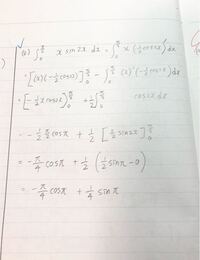 (2) ∫₀^{π/2} x sin2x dx = ∫₀^{π/2} x (-½cos2x)' dx
= [(x)(-½cos2x)]₀^{π/2} - ∫₀^{π/2} (x)'(-½cos2x) dx
= [-½x cos2x]₀^{π/2} + ½∫₀^{π/2} cos2x dx
= -½·π/2 cosπ + ½ [½ sin2x]₀^{π/2}
= -π/4 cosπ + ½ (½ sinπ - 0)
= -π/4 cosπ + ¼ sinπ